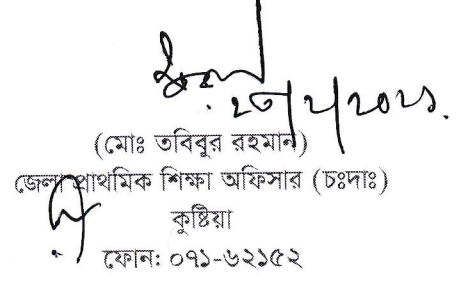 ২৩/২/২০২১.
(মোঃ তবিবুর রহমান)
জেলা প্রাথমিক শিক্ষা অফিসার (চঃদাঃ)
কুষ্টিয়া
ফোন: ০৭১-৬২১৫২